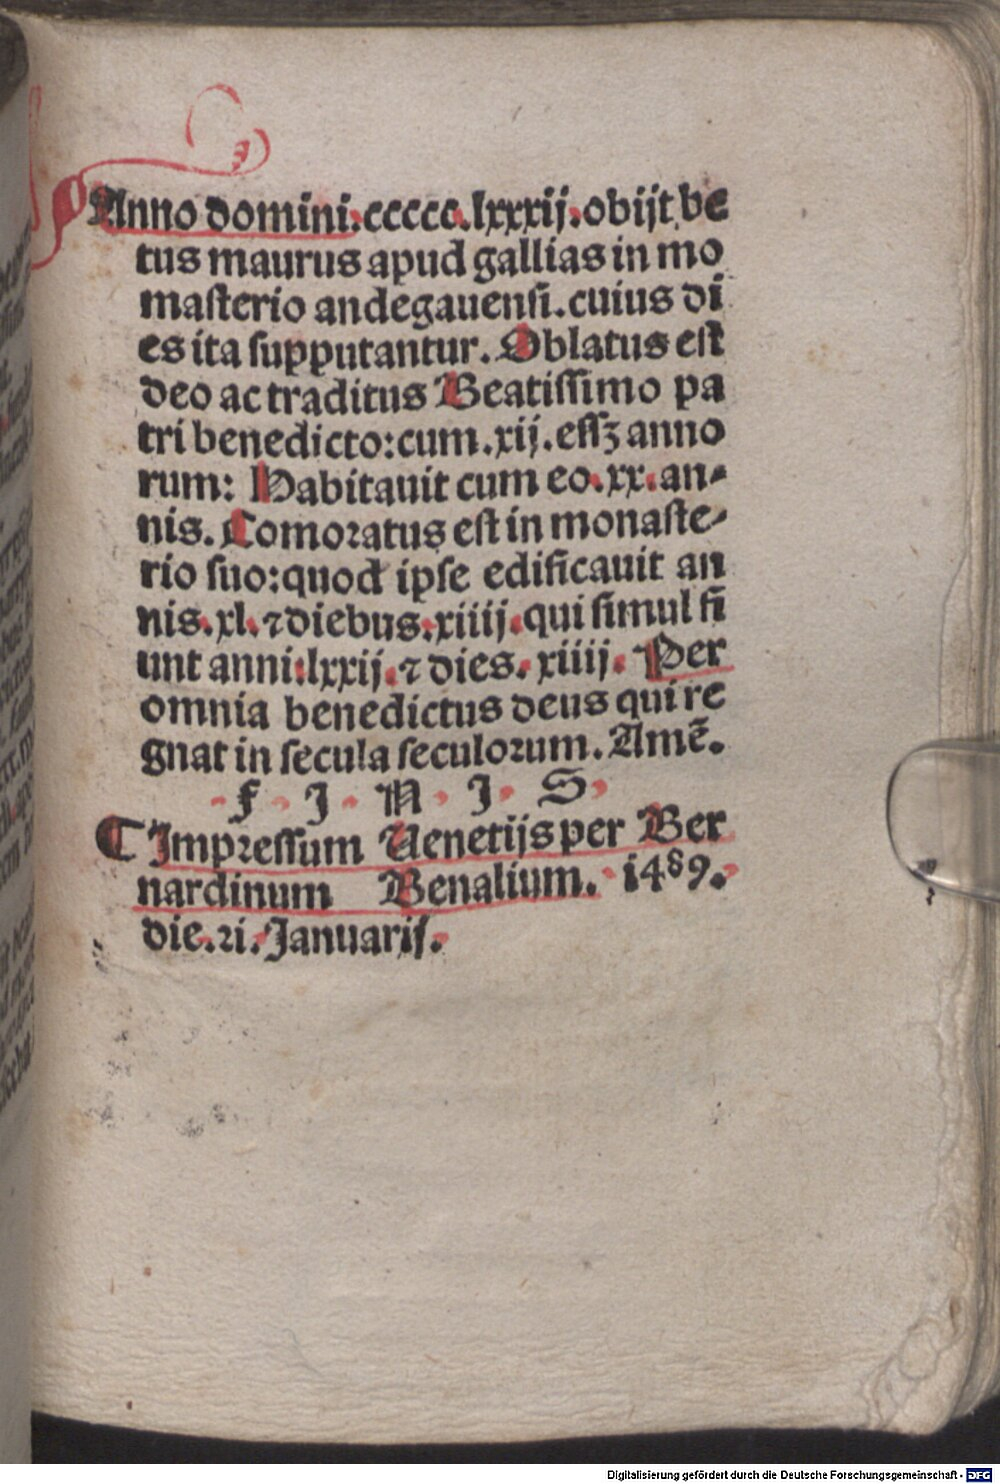 Anno domini.ccccc.lxxxij.obijt be
tus maurus apud gallias in mo
masterio andegauensi.cuius di
es ita supputantur. Oblatus est
deo ac traditus Beatissimo pa
tri benedicto:cum.xij.essꝫ anno
rum: Habitauit cum eo.xx.an-
nis. Comoratus est in monaste-
rio suo:quod ipse edificauit an
nis.xl.⁊ diebus.xiiij.qui simul fi
unt anni:lxxij.⁊ dies.xiiij. Per
omnia benedictus deus qui re
gnat in secula seculorum. Amē.
F . I . N . I . S .
¶ Impressum Uenetijs per Ber
nardinum Benalium. 1489.
die.21.Januarij.
Digitalisierung gefördert durch die Deutsche Forschungsgemeinschaft - DFG